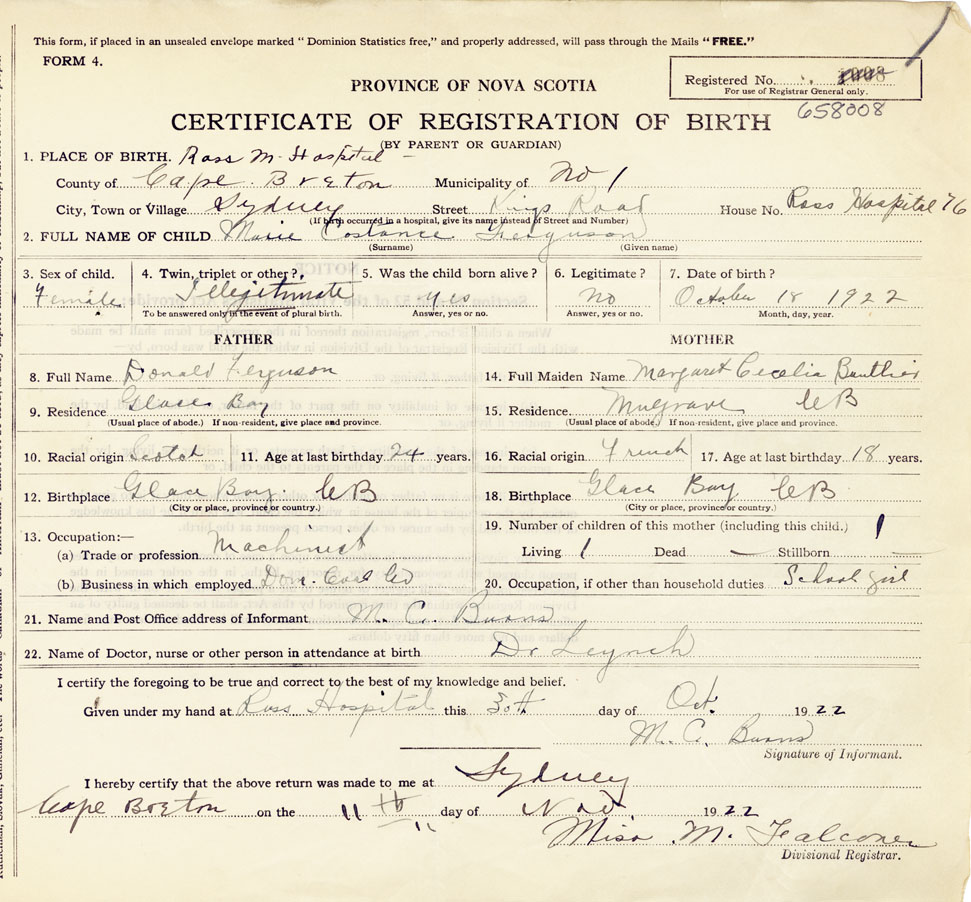 This form, if placed in an unsealed envelope marked "Dominion Statistics free," and properly addressed, will pass through the Mails "FREE."
FORM 4.
Registered No.
For use of Registrar General only.
658008
PROVINCE OF NOVA SCOTIA
CERTIFICATE OF REGISTRATION OF BIRTH
(BY PARENT OR GUARDIAN)
1. PLACE OF BIRTH. Ross M. Hospital
County of Cape Breton Municipality of No 1
City, Town or Village Sydney Street Kings Road House No. Ross Hospital 76
(If birth occurred in a hospital, give its name instead of Street and Number)
2. FULL NAME OF CHILD Marie Costance Ferguson
(Surname) (Given name)
3. Sex of child. 4. Twin, triplet or other? 5. Was the child born alive? 6. Legitimate? 7. Date of birth?
Female Illegitimate yes No October 18 1922
To be answered only in the event of plural birth. Answer, yes or no. Answer, yes or no. Month, day, year.
FATHER MOTHER
8. Full Name Donald Ferguson 14. Full Maiden Name Margaret Cecelia
9. Residence Glace Bay 15. Residence. Mulgrave CB
(Usual place of abode.) If non-resident, give place and province. (Usual place of abode.) If non-resident, give place and province.
10. Racial origin Scotch 11. Age at last birthday 24 years. 16. Racial origin French 17. Age at last birthday 18 years.
12. Birthplace Glace Bay. CB 18. Birthplace Glace Bay CB
(City or place, province or country.) (City or place, province or country.)
13. Occupation:— 19. Number of children of this mother (including this child.) 1
(a) Trade or profession Machinest Living 1 Dead — Stillborn —
(b) Business in which employed Dom. Coal Co 20. Occupation, if other than household duties School girl
21. Name and Post Office address of Informant M. C. Burns
22. Name of Doctor, nurse or other person in attendance at birth Dr Leynch
I certify the foregoing to be true and correct to the best of my knowledge and belief.
Given under my hand at Ross Hospital this 30th day of Oct. 1922
M. C. Burns
Signature of Informant.
I hereby certify that the above return was made to me at Sydney
Cape Breton on the 11th day of Nov. 1922
Miss M. Falconer
Divisional Registrar.